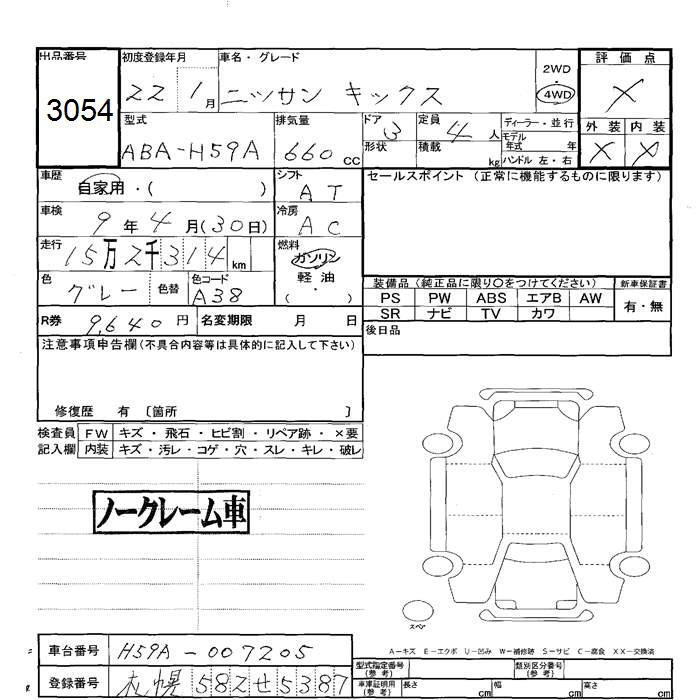 出品番号 初度登録年月 車名・グレード 評価点
3054 22 1月 ニッサン キックス 2WD 4WD X
型式 排気量 ドア 3 定員 4人 ディーラー・並行 外装 内装
ABA-H59A 660cc 形状 積載 kg モデル年式 年 X X
ハンドル 左・右
車歴 自家用・( ) シフト AT セールスポイント(正常に機能するものに限ります)
車検 9年4月(30日) 冷房 AC
走行 15万2千314km 燃料 ガソリン
軽油
( )
色 グレー 色替 色コード A38 装備品(純正品に限り○をつけてください) 新車保証書
PS PW ABS エアB AW 有・無
SR ナビ TV カワ
R券 9,640円 名変期限 月 日 後日品
注意事項申告欄(不具合内容等は具体的に記入して下さい)
修復歴 有 〔箇所 〕
検査員 FW キズ・飛石・ヒビ割・リペア跡・×要
記入欄 内装 キズ・汚レ・コゲ・穴・スレ・キレ・破レ
ノークレーム車
スペア
A-キズ E-エクボ U-凹み W-補修跡 S-サビ C-腐食 XX-交換済
車台番号 H59A-007205 型式指定番号(参考) 類別区分番号(参考)
登録番号 札幌582せ5387 車庫証明用(参考) 長さ cm 幅 cm 高さ cm